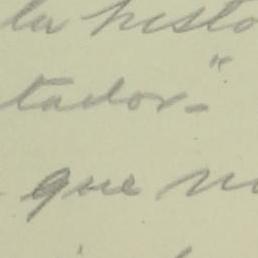 la histo
tador."
que no